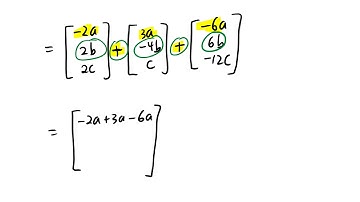 = [-2a 2b 2c] + [3a -4b c] + [-6a 6b -12c]
= [-2a+3a-6a]